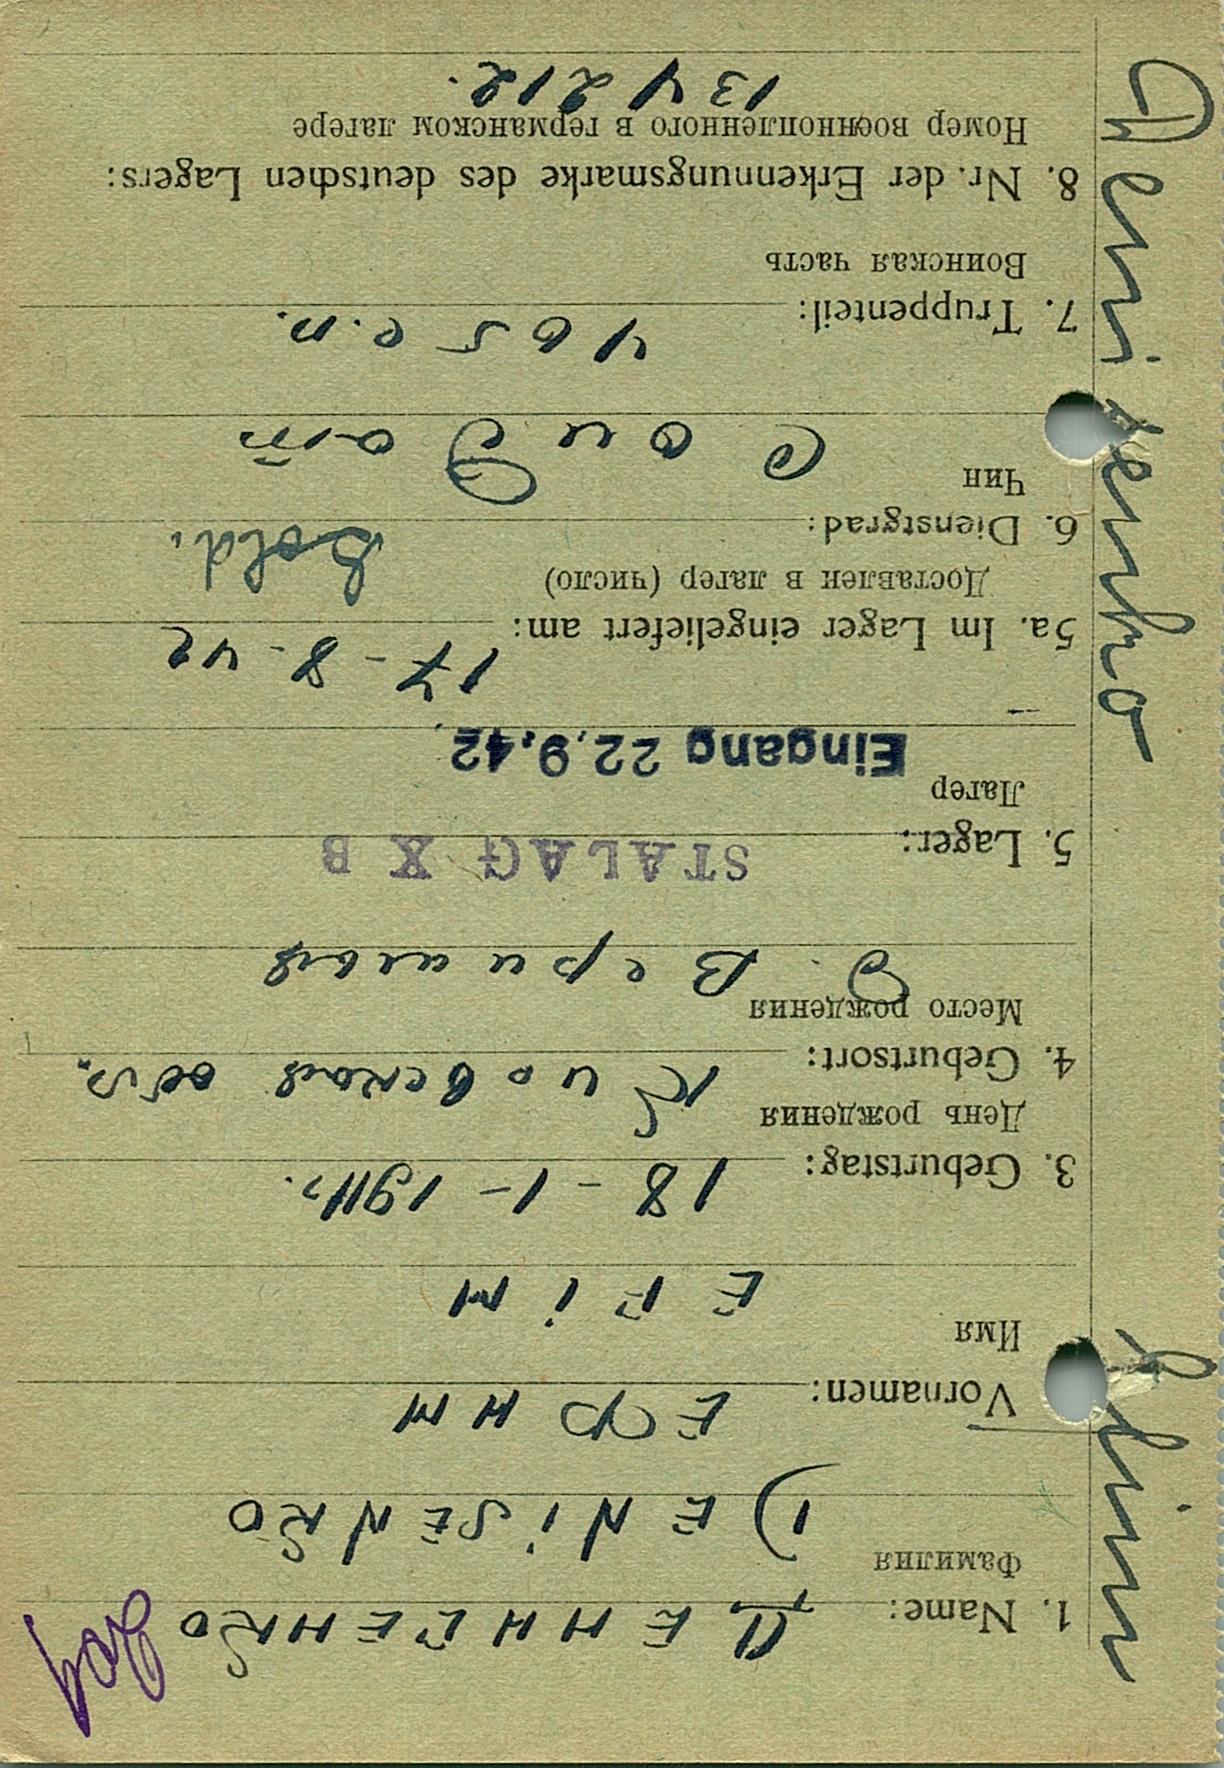 Denisenko Efim
1. Name: ДЕНИСЕНКО
Фамилия
DENiSENKO
Vornamen: ЕФИМ
Имя
EFiM
3. Geburtstag: 18 - 1 - 1911г.
День рождения
4. Geburtsort: Киевская обл.
Место рождения
д.
5. Lager: STALAG X B
Лагер
Eingang 22.9.42.
5a. Im Lager eingeliefert am: 17 - 8 - 42
Доставлен в лагер (число)
6. Dienstgrad: Sold.
Чин
Солдат
7. Truppenteil: 465 с.п.
Воинская часть
8. Nr. der Erkennungsmarke des deutschen Lagers:
Номер военнопленного в германском лагере
134212.